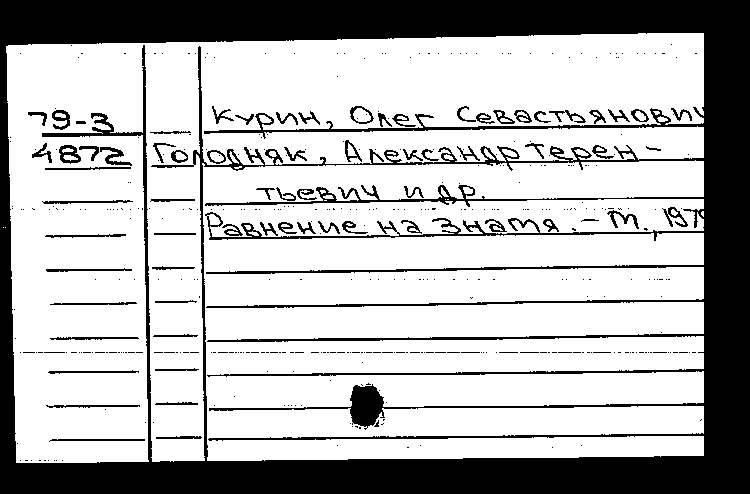 79-3 Курин, Олег Севастьянович
4872 Голодняк, Александр Терен-
тьевич и др.
Равнение на знамя. - М., 1979